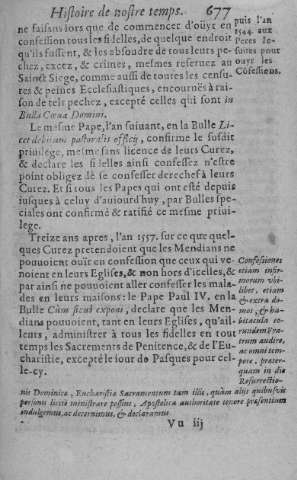 Histoire de nostre temps. 677
ne faisans lors que de commencer d'ouyr en
confession tous les fidelles, de quelque endroit
qu'ils fussent, & les absoudre de tous leurs pe-
chez, excez, & crimes, mesmes reseruez au
Sainct Siege, comme aussi de toutes les censu-
res & peines Ecclesiastiques, encouruës à rai-
son de tels pechez, excepté celles qui sont in
Bulla Cœnæ Domini.
Le mesme Pape, l'an suiuant, en la Bulle Li-
cet debitum pastoralis officij, confirme le susdit
priuilege, mesme sans licence de leurs Curez,
& declare les fidelles ainsi confessez n'estre
point obligez de se confesser derechef à leurs
Curez. Et si tous les Papes qui ont esté depuis
iusques à celuy d'aujourd'huy, par Bulles spe-
ciales ont confirmé & ratifié ce mesme priui-
lege.
Treize ans apres, l'an 1557. sur ce que quel-
ques Curez pretendoient que les Mendians ne
pouuoient ouïr en confession que ceux qui ve-
noient en leurs Eglises, & non hors d'icelles, &
par ainsi ne pouuoient aller confesser les mala-
des en leurs maisons: le Pape Paul IV. en la
Bulle Cùm sicut exponi, declare que les Men-
dians pouuoient, tant en leurs Eglises, qu'ail-
leurs, administrer à tous les fidelles en tout
temps les Sacrements de Penitence, & de l'Eu-
charistie, excepté le iour de Pasques pour cel-
le-cy.
puis l'an
1544. aux
Peres Ie-
suites pour
ouyr les
Cōfessions.
Confessiones
etiam infir-
morum vbi-
libet, etiam
& extra do-
mos, & ha-
bitacula eo-
rundem Fra-
trum audire,
ac omni tem-
pore, præter-
quam in die
Resurrectio-
nis Dominicæ, Eucharistiæ Sacramentum tam illis, quàm alijs quibusvis
personis licitè ministrare possint, Apostolica authoritate tenore præsentium
indulgemus, ac decernimus, & declaramus
Vu iij